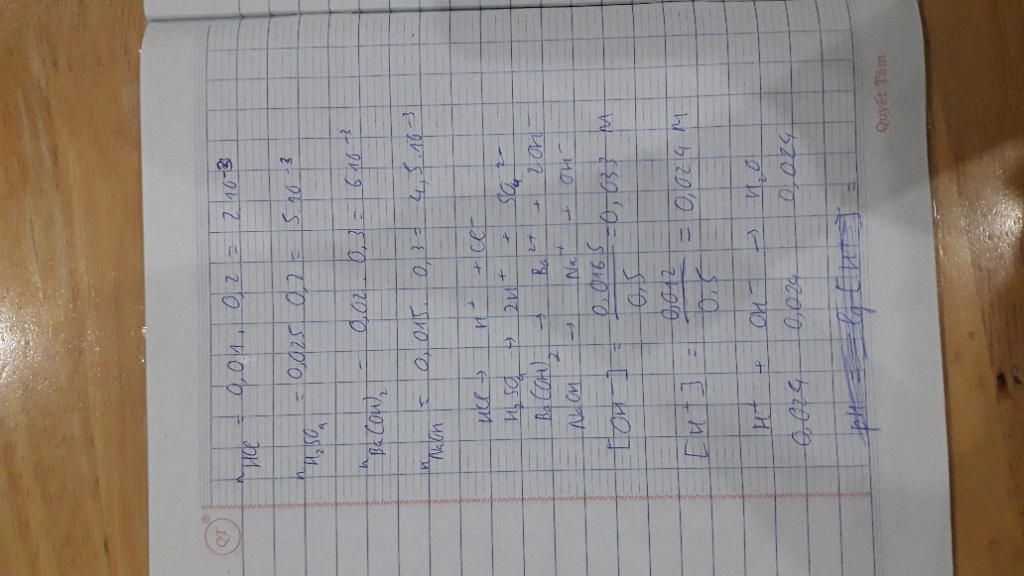 QT
n HCl = 0,01 . 0,2 = 2 10⁻³
n H₂SO₄ = 0,025 0,2 = 5.10⁻³
n Ba(OH)₂ = 0,02. 0,3 = 6 10⁻³
n NaOH = 0,015. 0,3 = 4,5.10⁻³
HCl → H⁺ + Cl⁻
H₂SO₄ → 2H⁺ + SO₄²⁻
Ba(OH)₂ → Ba²⁺ + 2OH⁻
NaOH → Na⁺ + OH⁻
[OH⁻] = 0,0165 / 0,5 = 0,033 M
[H⁺] = 0,012 / 0,5 = 0,024 M
H⁺ + OH⁻ → H₂O
0,024 0,024 0,024
pH = -lg [H⁺] =
Quyết Tâm